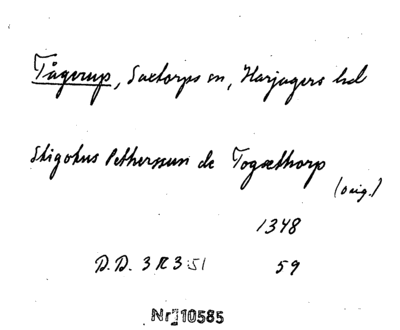 Tågerup, Saxtorps sn, Harjagers hd
Stigotus Pethersøun de Togæthorp
(orig.)
1348
D.D. 3 R 3:51 59
Nr 10585